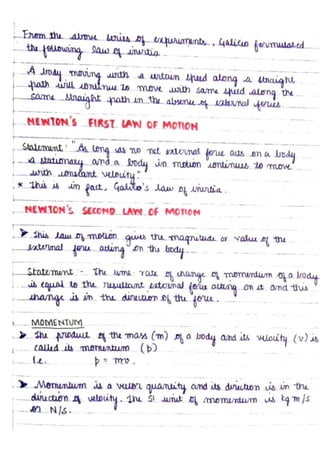 From the above series of experiments, Galileo formulated
the following law of inertia
A body moving with a certain speed along a straight
path will continue to move with same speed along the
same straight path in the absence of external forces
NEWTON'S FIRST LAW OF MOTION
Statement: "As long as no net external force acts on a body
a stationary and a body in motion continues to move
with constant velocity."
* This is in fact, Galileo's law of inertia.
NEWTON'S SECOND LAW OF MOTION
➤ This law of motion gives the magnitude or value of the
external force acting on the body.
Statement - The time rate of change of momentum of a body
is equal to the resultant external force acting on it and this
change is in the direction of the force.
MOMENTUM
➤ The product of the mass (m) of a body and its velocity (v) is
called its momentum (p)
i.e. p = mv.
➤ Momentum is a vector quantity and its direction is in the
direction of velocity. The SI unit of momentum is kg m/s
or N/s.